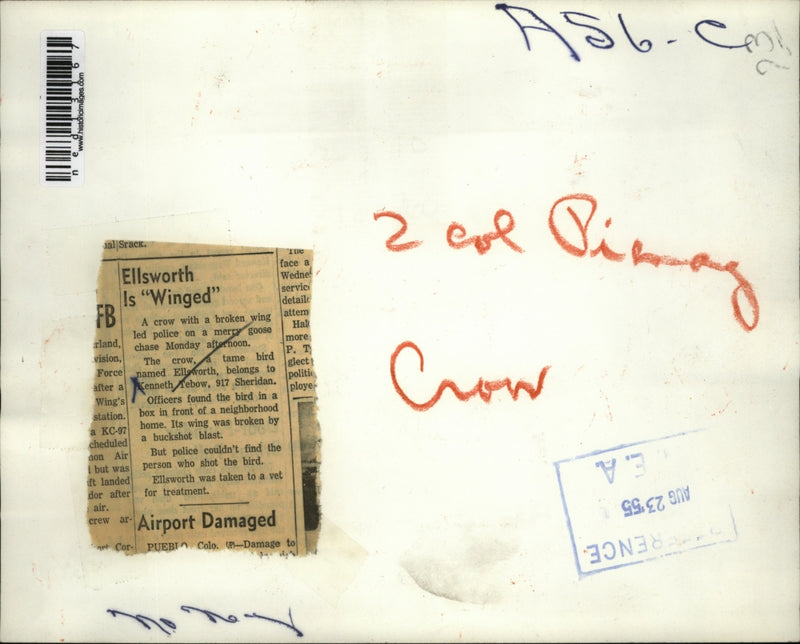 A56-C
www.historicimages.com
2 col
Crow
Srack.
Ellsworth
Is "Winged"
A crow with a broken wing
led police on a merry goose
chase Monday afternoon.
The crow, a tame bird
named Ellsworth, belongs to
Kenneth Tebow, 917 Sheridan.
Officers found the bird in a
box in front of a neighborhood
home. Its wing was broken by
a buckshot blast.
But police couldn't find the
person who shot the bird.
Ellsworth was taken to a vet
for treatment.
Airport Damaged
PUEBLO, Colo. (P)—Damage to
FB
rland,
vision,
Force
after a
Wing's
station.
a KC-97
cheduled
non Air
l but was
ft landed
dor after
air.
crew ar-
ort Cor-
The
face a
Wedne
servic
detail
attem
Hal
more
P. T
glect
politi
ploye
E. A.
AUG 23 '55
ERENCE